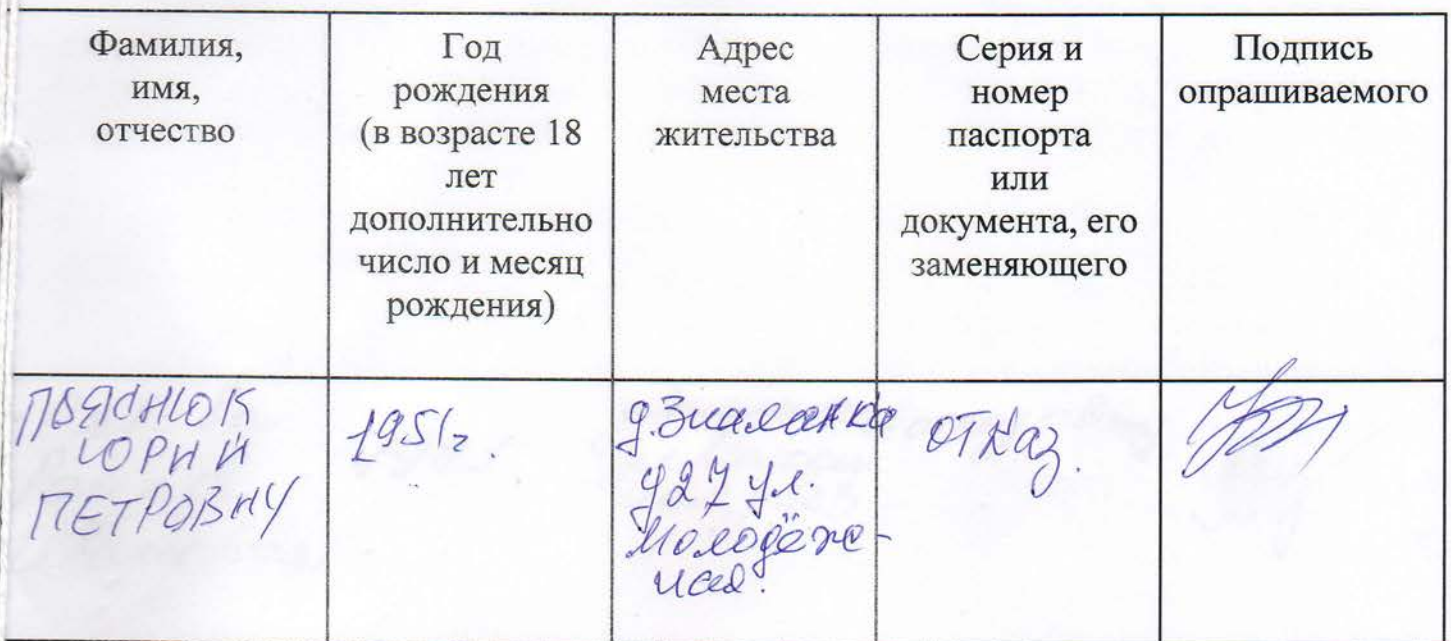 Фамилия,
имя,
отчество
Год
рождения
(в возрасте 18
лет
дополнительно
число и месяц
рождения)
Адрес
места
жительства
Серия и
номер
паспорта
или
документа, его
заменяющего
Подпись
опрашиваемого
ЮРИЙ
ПЕТРОВИЧ
1951г.
д.
д27 ул.
Молодёж-
ная.
отказ.